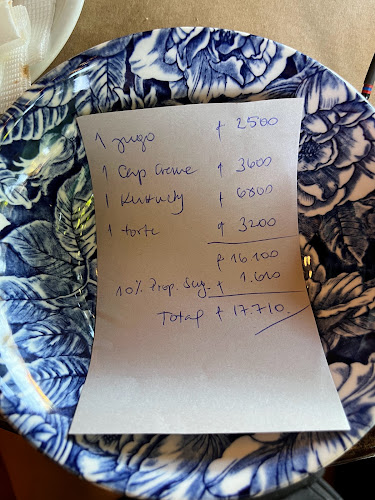 1 jugo $ 2500
1 Cap Creme $ 3600
1 $ 6800
1 torta $ 3200
$ 16.100
10% Prop. Sug. $ 1.610
Total $ 17.710.